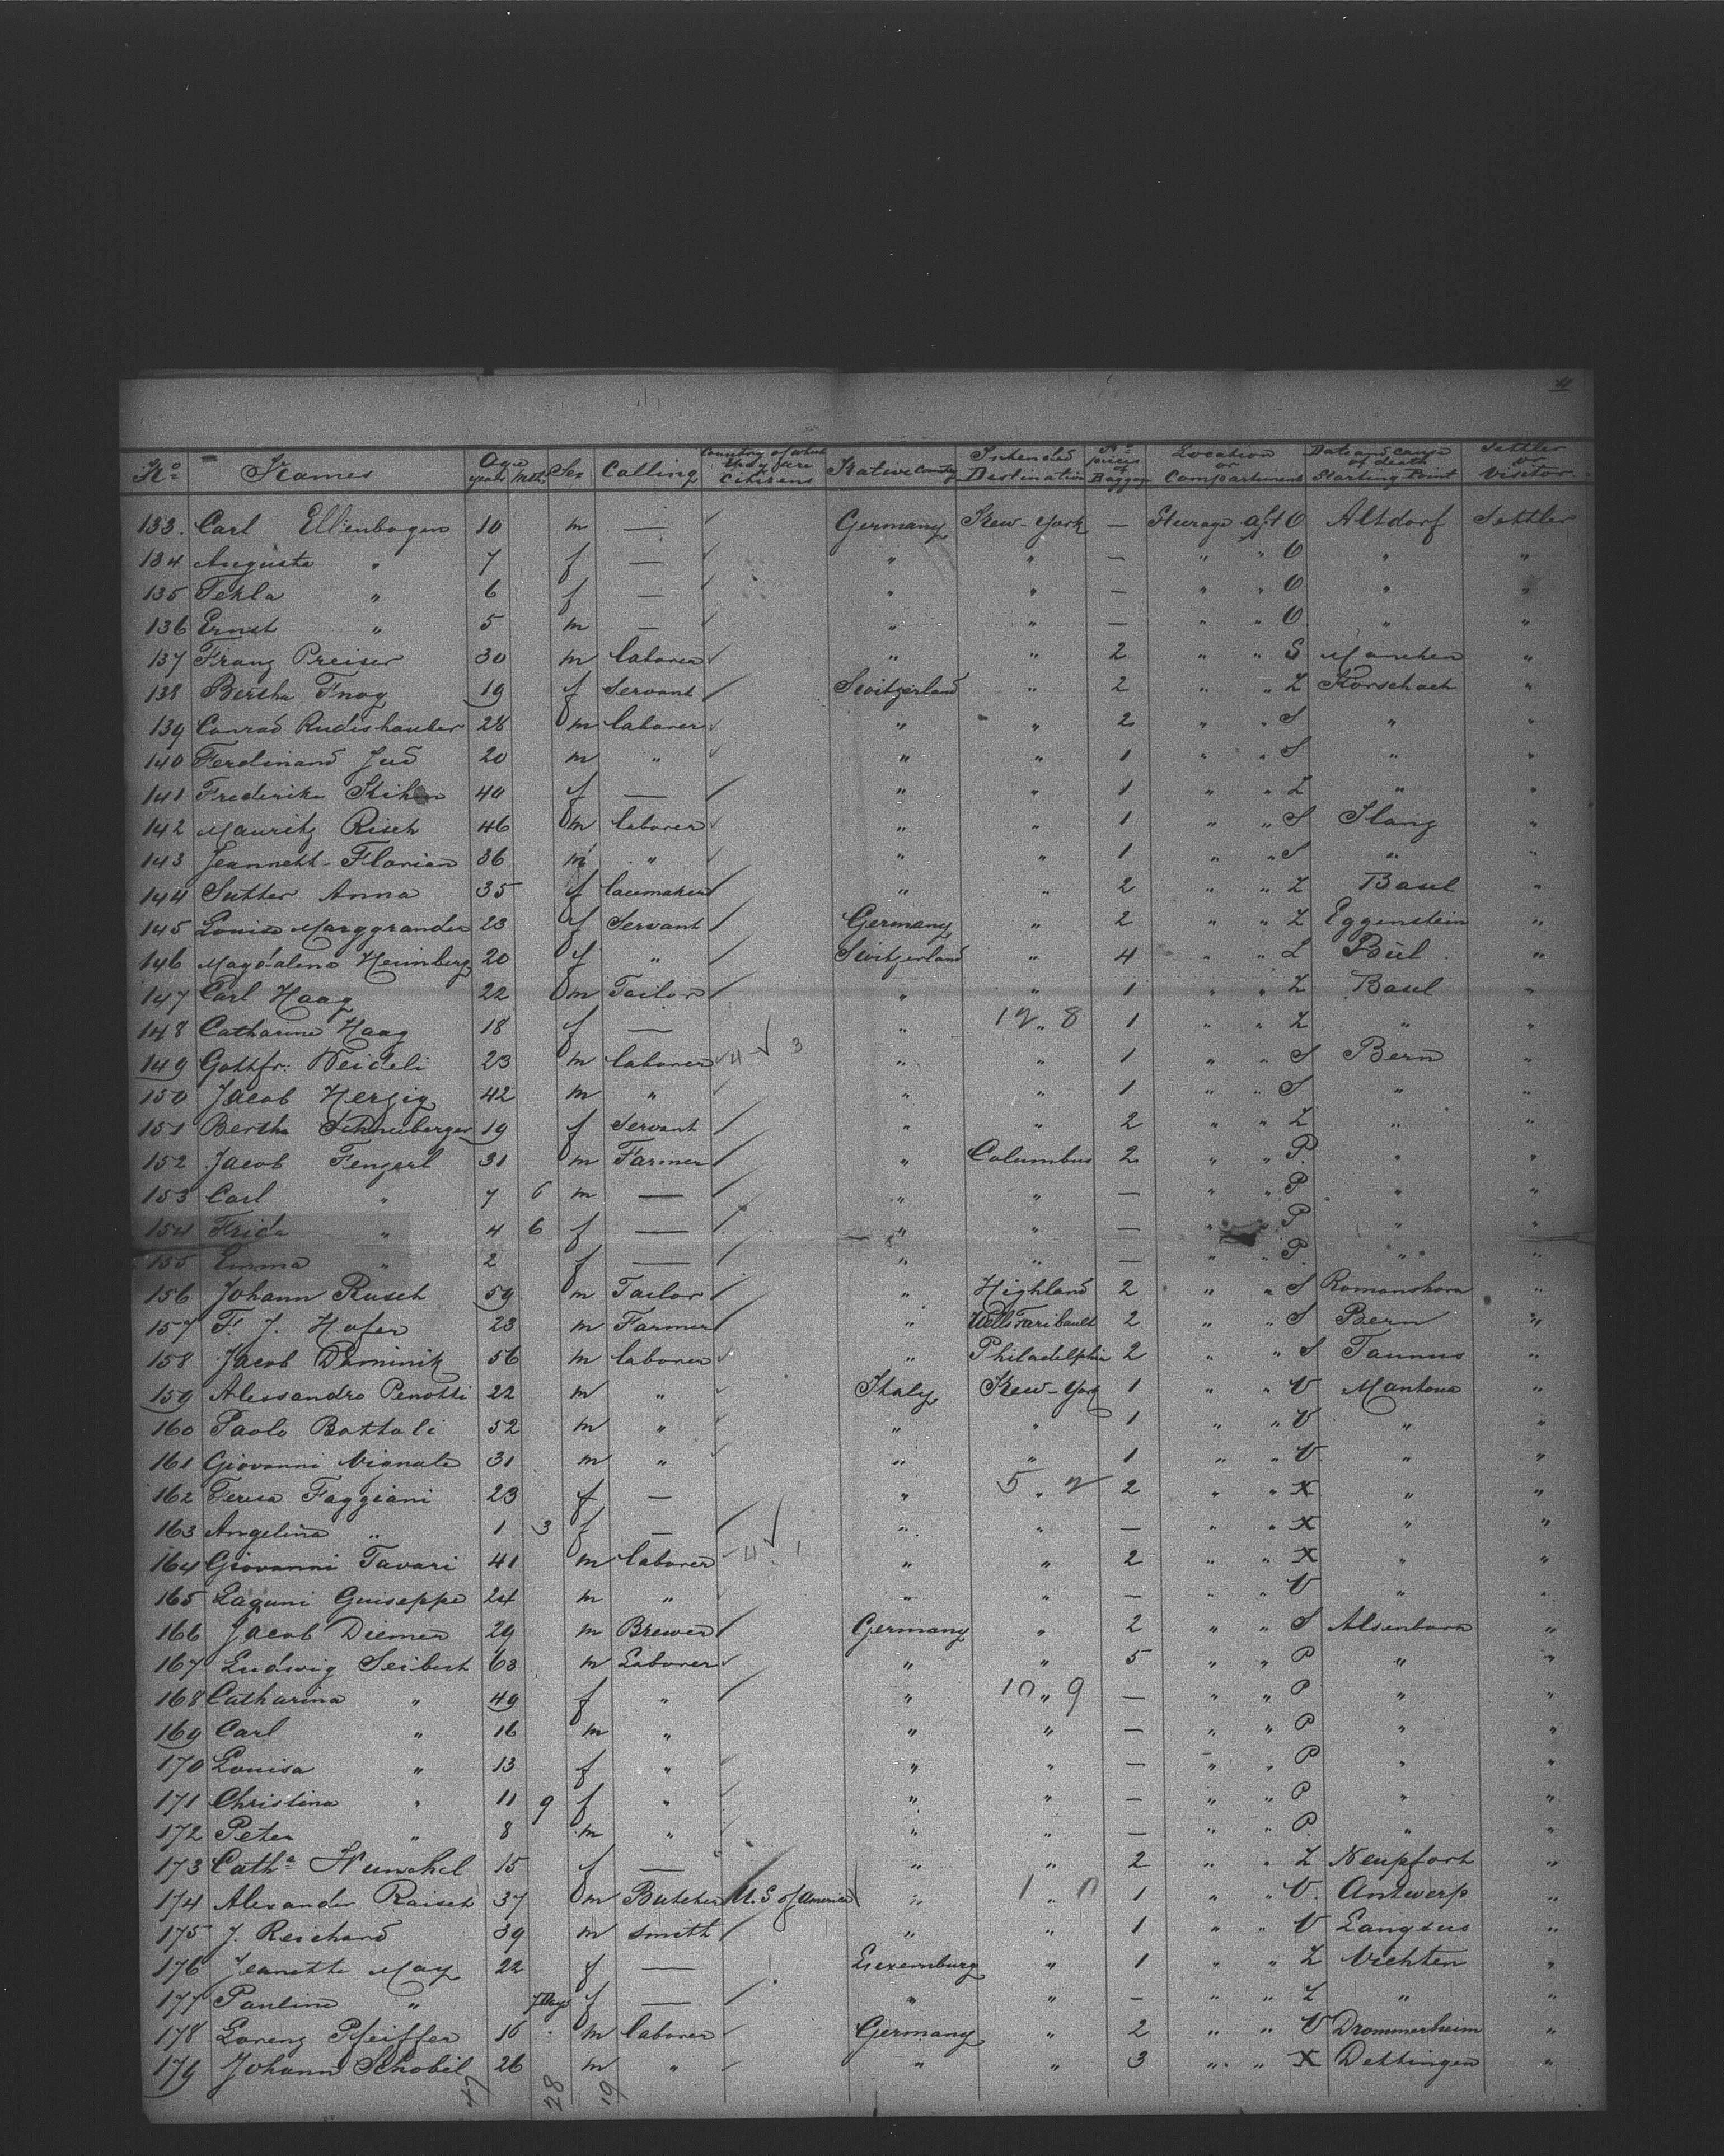 4
No Names Age years Mth. Sex Calling Country of which they are Citizens Native Country Intended Destination No pieces of Baggage Location or Compartment Date and cause of death Starting Point Settler or Visitor
133. Carl Ellenbogen 10 m — Germany New-York — Steerage aft O Altdorf Settler
134 Auguste " 7 f — " " — " " O " "
135 Tekla " 6 f — " " — " " O " "
136 Ernst " 5 m — " " — " " O " "
137 Franz Preiser 30 m laborer " " 2 " " S Manchen "
138 Bertha 19 f Servant Switzerland " 2 " " Z Rorschach "
139 Conrad Rudishauber 28 m laborer " " 2 " " S " "
140 Ferdinand Jud 20 m " " " 1 " " S " "
141 Frederike 40 f — " " 1 " " Z " "
142 Mauritz Risch 46 m laborer " " 1 " " S Ilanz "
143 Jeannett-Florian 36 m " " " 1 " " S " "
144 Sutter Anna 35 f lacemaker " " 2 " " Z Basel "
145 Louise Marggrander 23 f Servant Germany " 2 " " Z Eggenstein "
146 Magdalena Heimberg 20 f " Switzerland " 4 " " Z "
147 Carl Haag 22 m Tailor " " 1 " " Z Basel "
148 Catharine Haag 18 f — " 12 " 8 1 " " Z " "
149 Gottfr: Neideli 23 m laborer 4 3 " " 1 " " S Bern "
150 Jacob Herzig 42 m " " " 1 " " S " "
151 Bertha Schneuberger 19 f Servant " " 2 " " Z " "
152 Jacob Fengerl 31 m Farmer " Columbus 2 " " P " "
153 Carl " 7 6 m — " " — " " P " "
154 Frida " 4 6 f — " " — " " P " "
155 Emma " 2 f — " " — " " P " "
156 Johann Rusch 59 m Tailor " Highland 2 " " S Romanshorn "
157 F. J. Hofer 23 m Farmer " Wells Faribault 2 " " S Bern "
158 Jacob Dominik 56 m laborer " Philadelphia 2 " " S Taunus "
159 Alessandro Penotti 22 m " Italy New-York 1 " " V Mantova "
160 Paolo Bottoli 52 m " " " 1 " " V " "
161 Giovanni Vianale 31 m " " " 1 " " V " "
162 Teresa Faggiani 23 f — " 5 " 2 2 " " X " "
163 Angelina " 1 3 f — " " — " " X " "
164 Giovanni Tavari 41 m laborer 4 1 " " 2 " " X " "
165 Laguni Guiseppe 24 m " " " — " " V " "
166 Jacob Diemer 29 m Brewer Germany " 2 " " S Alsenborn "
167 Ludwig Seibert 63 m Laborer " " 5 " " P " "
168 Catharina " 49 f " " 10 " 9 — " " P " "
169 Carl " 16 m " " " — " " P " "
170 Louisa " 13 f " " " — " " P " "
171 Christina " 11 9 f " " " — " " P " "
172 Peter " 8 m " " " — " " P " "
173 Cath.a Kunckel 15 f — " " 2 " " Z Neupfort "
174 Alexander Raisch 37 m Butcher U.S of America " 1 " 0 1 " " V Antwerp "
175 J. Reichard 39 m smith " " 1 " " V Langsus "
176 Jeanette May 22 f — Luxemburg " 1 " " Z Vichten "
177 Pauline " 7 Days f — " " — " " Z " "
178 Lorenz Pfeiffer 16 m laborer Germany " 2 " " V Drommersheim "
179 Johann Schobel 26 m " " " 3 " " X Dettingen "
47 28 19